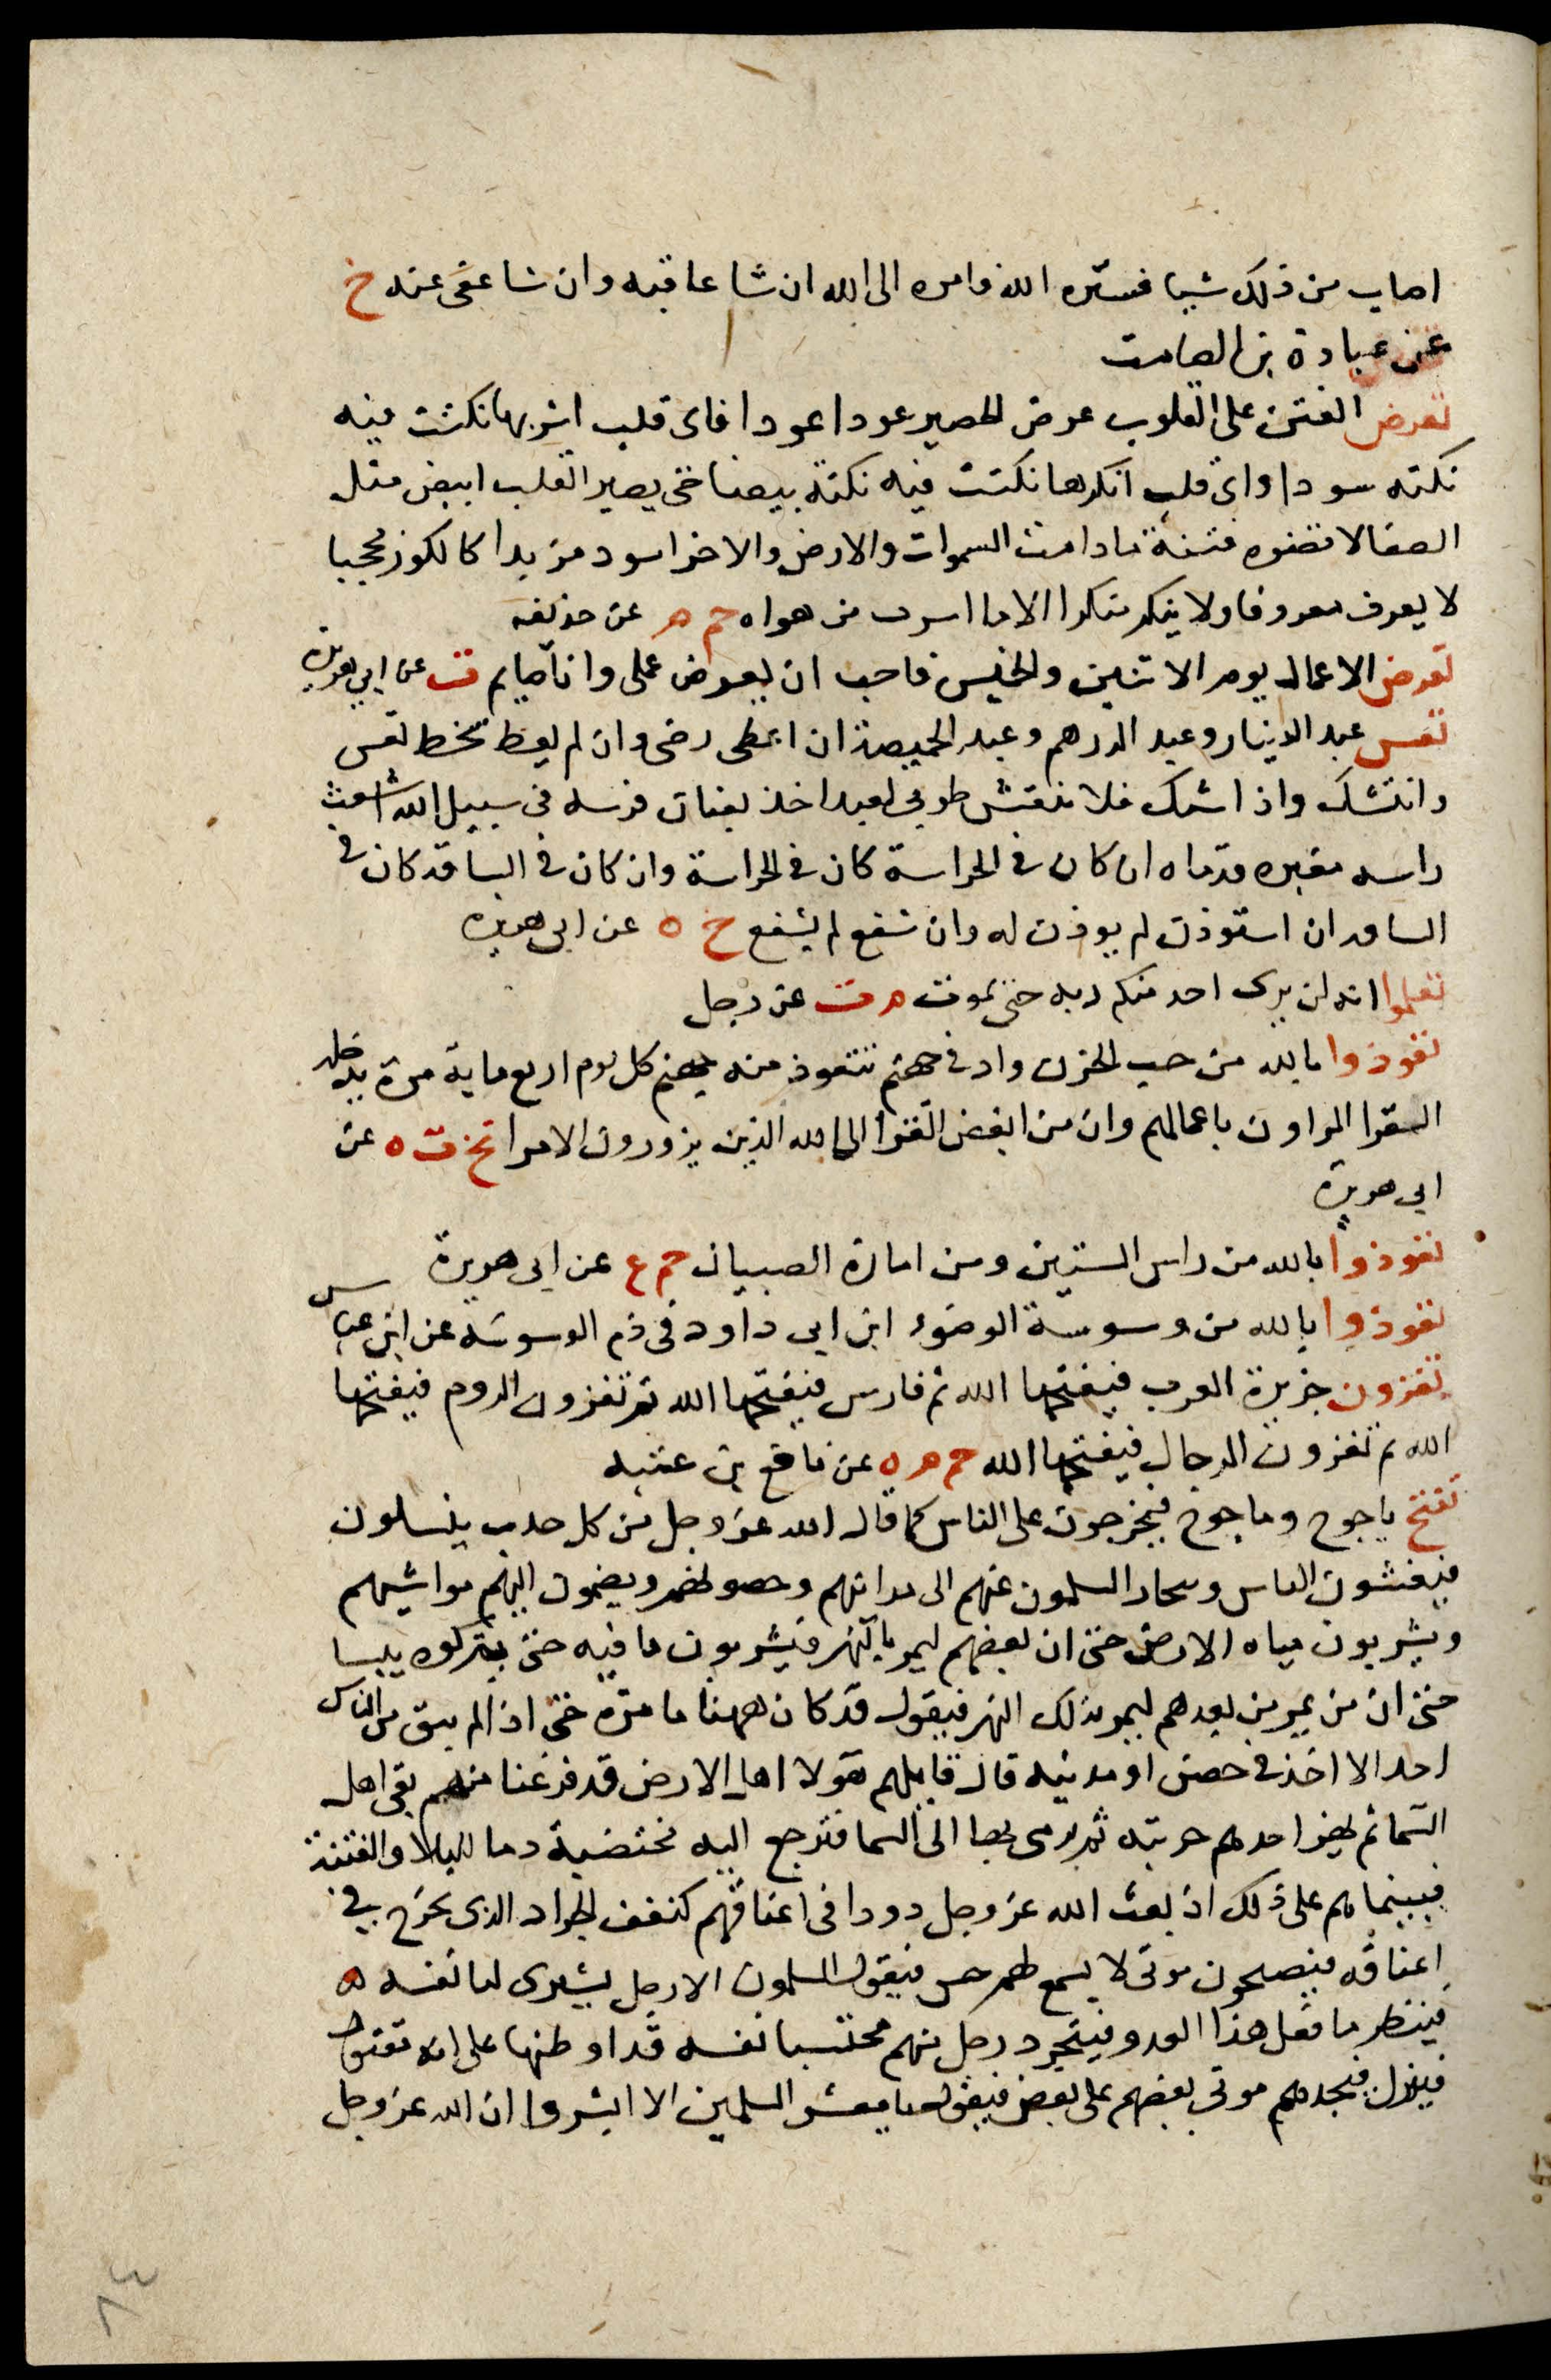 اصاب من ذلك شيا فستره الله فامره الى الله ان شا عاقبه وان شا عفى عنه خ
عن عبادة بن الصامت
تعرض الفتن على القلوب عرض الحصير عودا عودا فاى قلب اشربها نكتت فيه
نكته سودا واى قلب انكرها نكتت فيه نكتة بيضا حتى يصير القلب ابيض مثل
الصفا لا تضره فتنة ما دامت السموات والارض والاخر اسود مربدا كالكوز مجخيا
لا يعرف معروفا ولا ينكر منكرا الا ما اشرب من هواه حم م عن حذيفه
تعرض الاعمال يوم الاثنين والخميس فاحب ان يعرض عملى وانا صايم ت عن ابي هريرة
تعس عبد الدينار وعبد الدرهم وعبد الخميصة ان اعطى رضى وان لم يعط سخط تعس
وانتشك واذا شيك فلا نتقش طوبى لعبد اخذ بعنان فرسه فى سبيل الله اشعث
راسه مغبره قدماه ان كان فى الحراسة كان فى الحراسة وان كان فى الساقة كان فى
الساقه ان استوذن لم يوذن له وان شفع لم يشفع خ ه عن ابى هريره
تعلموا انه لن يرى احد منكم ربه حتى يموت م ت عن رجل
تعوذوا بالله من جب الحزن واد فى جهنم تتعوذ منه جهنم كل يوم اربع ماية مرة يدخله
القرا المراون باعمالهم وان من ابغض القرا الى الله الذين يزورون الامرا تخ ت ه عن
ابى هريرة
تعوذوا بالله من راس الستين ومن امارة الصبيان حم ع عن ابى هريرة
تعوذوا بالله من وسوسة الوضوء ابن ابى داود فى ذم الوسوسه عن ابن عباس
تغزون جزيرة العرب فيفتحها الله ثم فارس فيفتحها الله ثم تغزون الروم فيفتحها
الله ثم تغزون الدجال فيفتحها الله حم م ه عن نافع بن عتبه
تفتح ياجوج وماجوج فيخرجون على الناس كما قال الله عز وجل من كل حدب ينسلون
فيغشون الناس وينحاز المسلمون عنهم الى مدائنهم وحصونهم ويضمون اليهم مواشيهم
ويشربون مياه الارض حتى ان بعضهم ليمر بالنهر فيشربون ما فيه حتى يتركوه يبسا
حتى ان من يمر من بعدهم ليمر بذلك النهر فيقول قد كان ههنا ما مرة حتى اذا لم يبق من الناس
احد الا اخذ فى حصن او مدينه قال قايلهم هولا اهل الارض قد فرغنا منهم بقى اهل
السما ثم يهز احدهم حربته ثم يرمى بها الى السما فترجع اليه مختضبة دما للبلا والفتنة
فبينما هم على ذلك اذ بعث الله عز وجل دودا فى اعناقهم كنغف الجراد الذى يخرج فى
اعناقه فيصبحون موتى لا يسمع لهم حس فيقول المسلمون الا رجل يشرى لنا نفسه
فينظر ما فعل هذا العدو فيتجرد رجل منهم محتسبا نفسه قد اوطنها على انه مقتول
فينزل فيجدهم موتى بعضهم على بعض فيقول يا معشر المسلمين الا ابشروا ان الله عز وجل